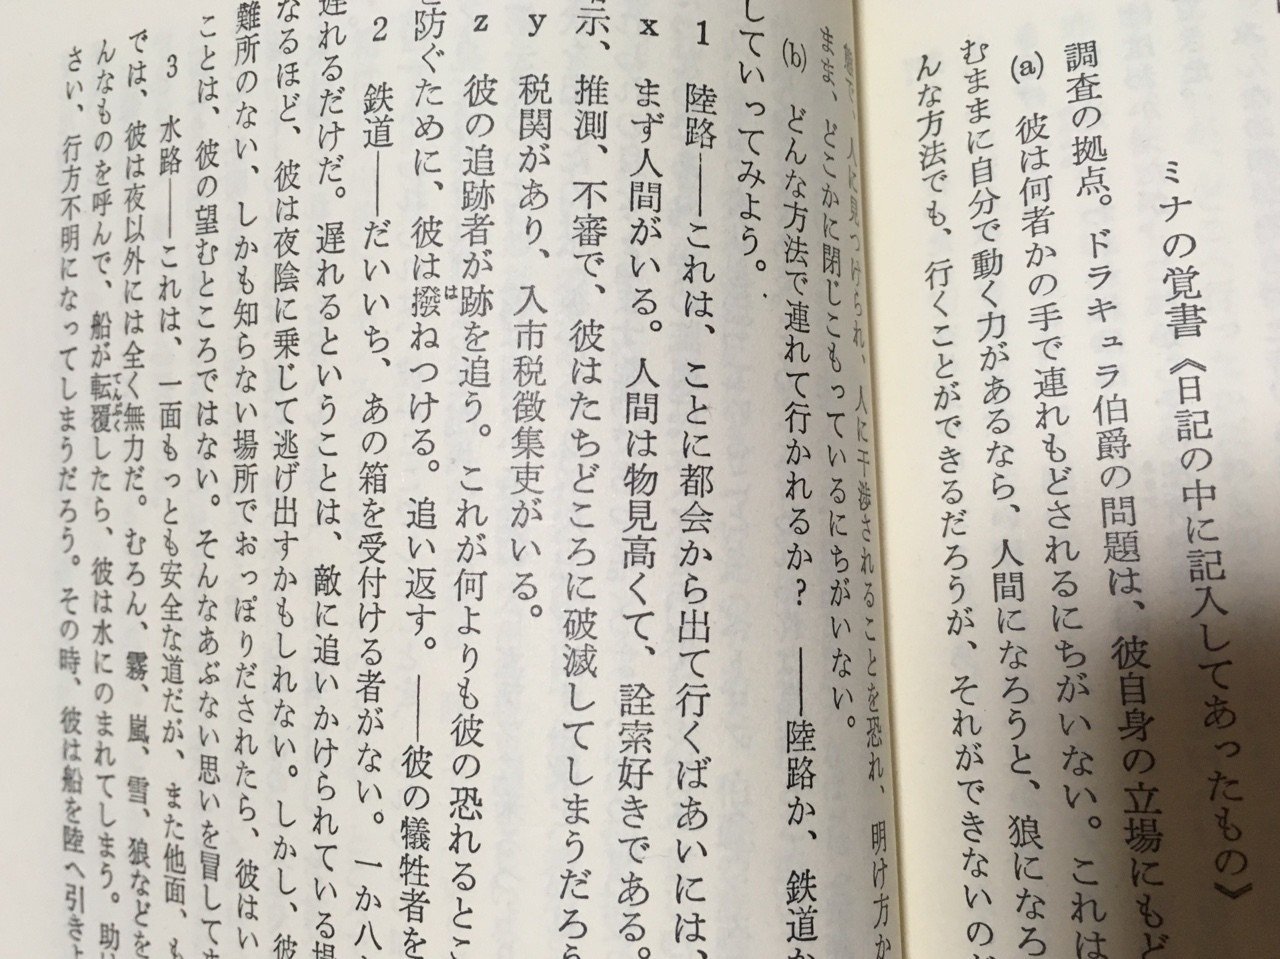 ミナの覚書《日記の中に記入してあったもの》
調査の拠点。ドラキュラ伯爵の問題は、彼自身の立場にもど
(a) 彼は何者かの手で連れもどされるにちがいない。これは
むままに自分で動く力があるなら、人間になろうと、狼になろ
んな方法でも、行くことができるだろうが、それができないのだ
で、人に見つけられ、人に干渉されることを恐れ、明け方か
まま、どこかに閉じこもっているにちがいない。
(b) どんな方法で連れて行かれるか？ ――陸路か、鉄道か
していってみよう。
1 陸路――これは、ことに都会から出て行くばあいには、
x まず人間がいる。人間は物見高くて、詮索好きである。
示、推測、不審で、彼はたちどころに破滅してしまうだろう
y 税関があり、入市税徴集吏がいる。
z 彼の追跡者が跡を追う。これが何よりも彼の恐れるとこ
防ぐために、彼は撥ねつける。追い返す。――彼の犠牲者を
2 鉄道――だいいち、あの箱を受付ける者がない。一か八
遅れるだけだ。遅れるということは、敵に追いかけられている場
なるほど、彼は夜陰に乗じて逃げ出すかもしれない。しかし、彼
難所のない、しかも知らない場所でおっぽりだされたら、彼はい
ことは、彼の望むところではない。そんなあぶない思いを冒してま
3 水路――これは、一面もっとも安全な道だが、また他面、も
では、彼は夜以外には全く無力だ。むろん、霧、嵐、雪、狼などを
んなものを呼んで、船が転覆したら、彼は水にのまれてしまう。助
さい、行方不明になってしまうだろう。その時、彼は船を陸へ引きよ